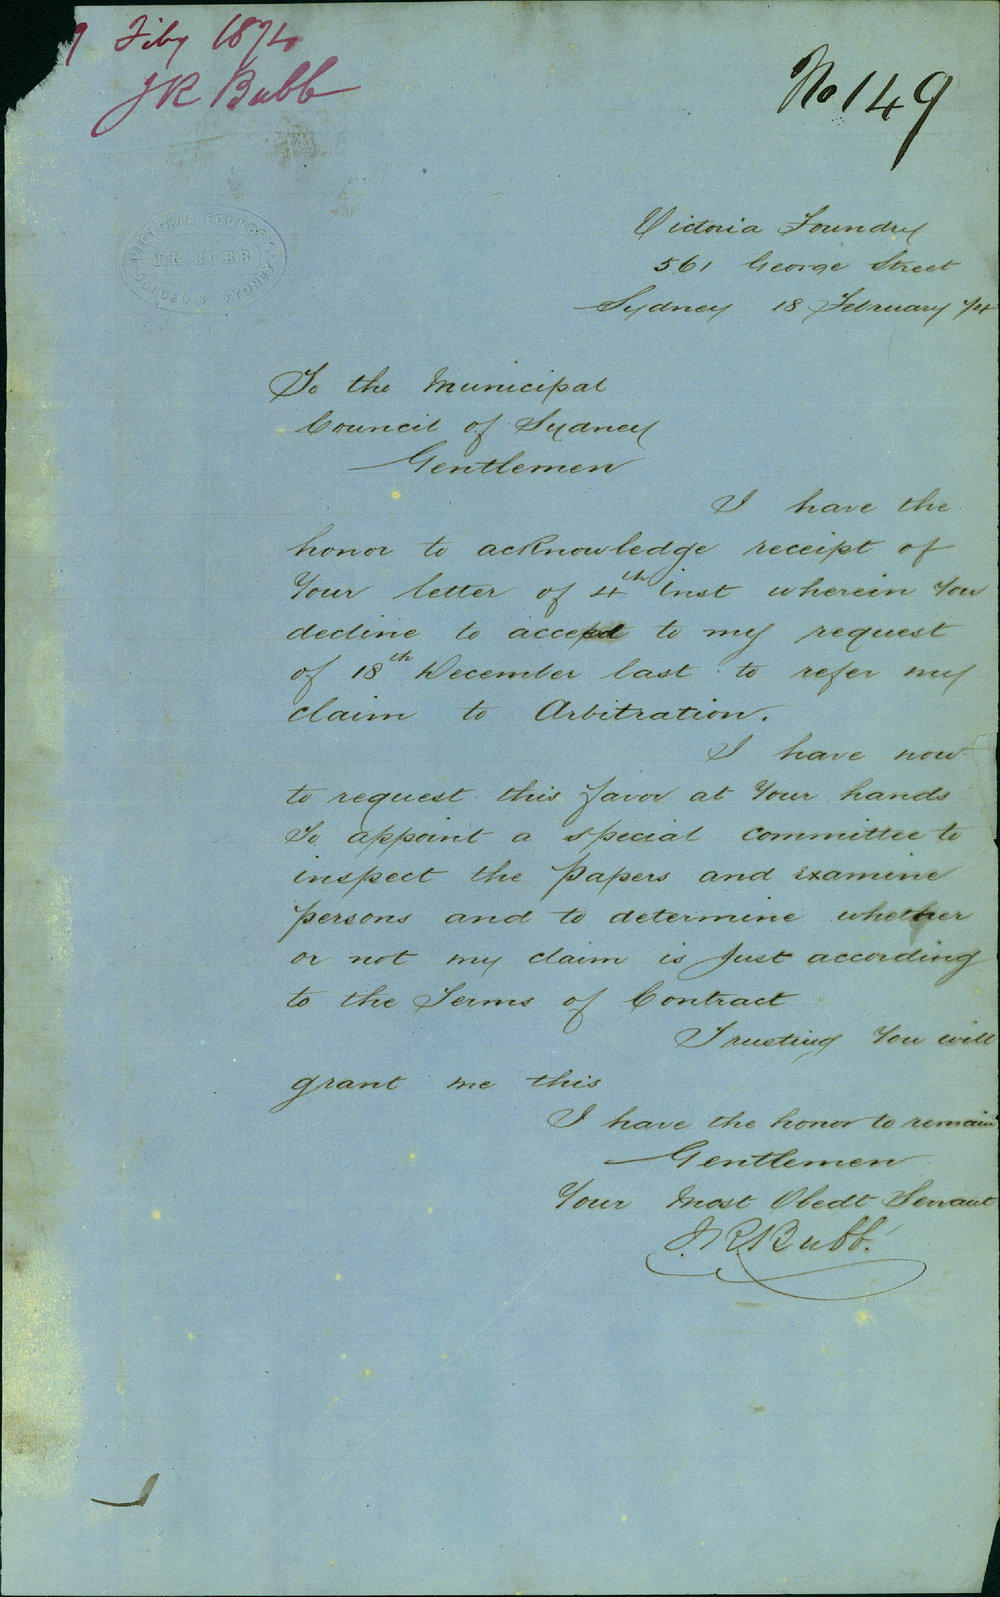 9 Feby 1874
JR Bubb
No 149
VICTORIA FOUNDRY
J.R. BUBB
SYDNEY
Victoria Foundry
561 George Street
Sydney 18 February /74
To the Municipal
Council of Sydney
Gentlemen
I have the
honor to acknowledge receipt of
Your letter of 4th inst wherein You
decline to acceed to my request
of 18th December last to refer my
claim to Arbitration.
I have now
to request this favor at Your hands
To appoint a special committee to
inspect the papers and examine
persons and to determine whether
or not my claim is Just according
to the Terms of Contract
Trusting You will
grant me this
I have the honor to remain
Gentlemen
Your Most Obedt Servant
J.R. Bubb.